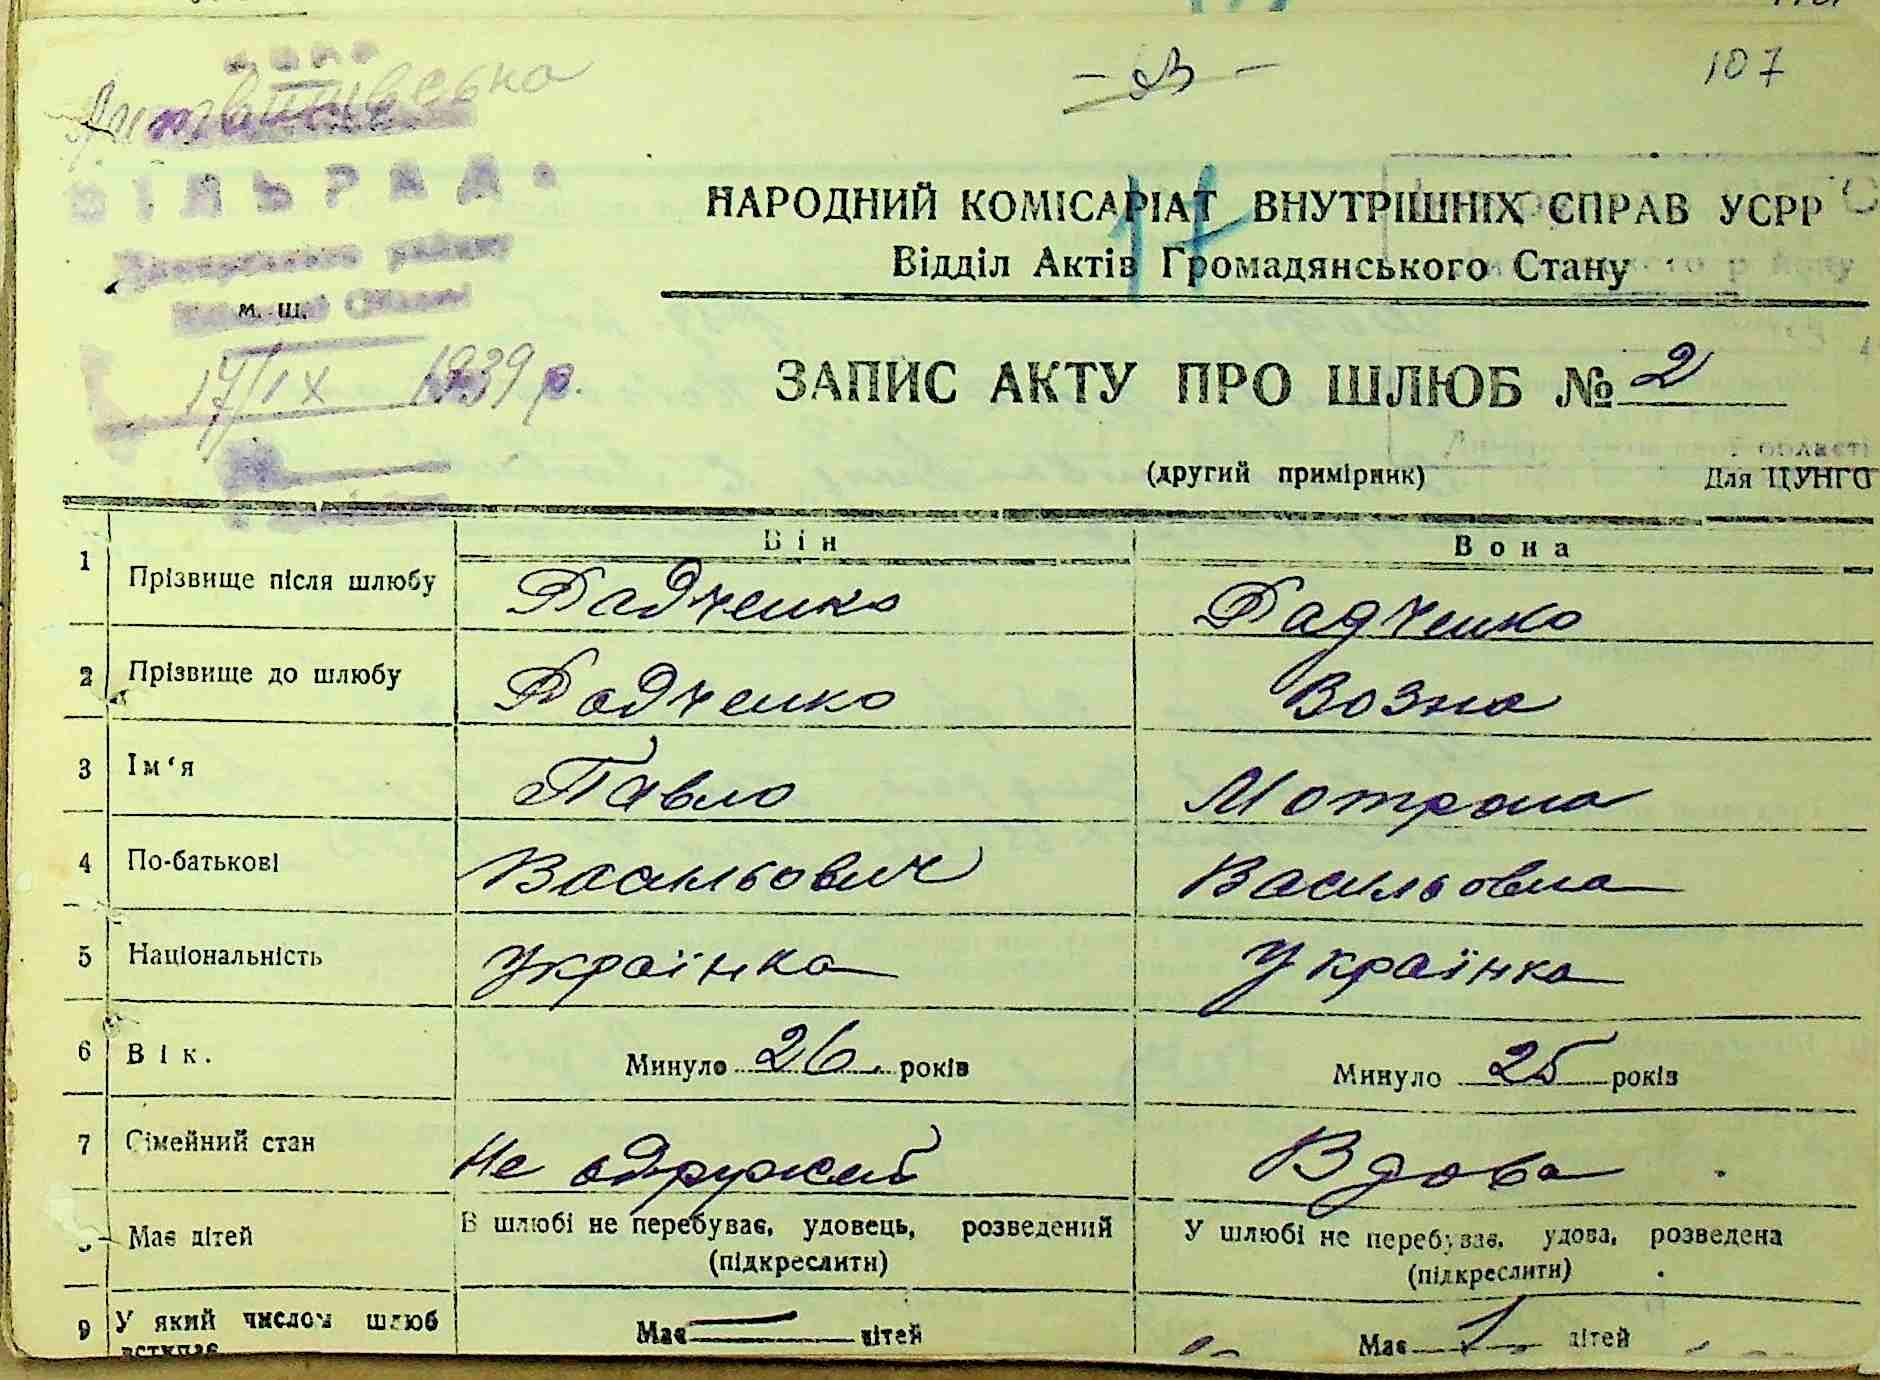 107
СІЛЬРАДА
району
м. ш.
17/IX 1939 р.
НАРОДНИЙ КОМІСАРІАТ ВНУТРІШНІХ СПРАВ УСРР
17
Відділ Актів Громадянського Стану
ЗАПИС АКТУ ПРО ШЛЮБ № 2
області
(другий примірник) Для ЦУНГО
Він Вона
1 Прізвище після шлюбу Радченко Радченко
2 Прізвище до шлюбу Радченко Возна
3 Ім'я Павло Мотрона
4 По-батькові Васильович Васильовна
5 Національність Українка Українка
6 Вік. Минуло 26 років Минуло 25 років
7 Сімейний стан Не одружений Вдова
Має дітей В шлюбі не перебуває, удовець, розведений У шлюбі не перебуває, удова, розведена
(підкреслити) (підкреслити)
9 У який числом шлюб Має — дітей Має 1 дітей
вступає